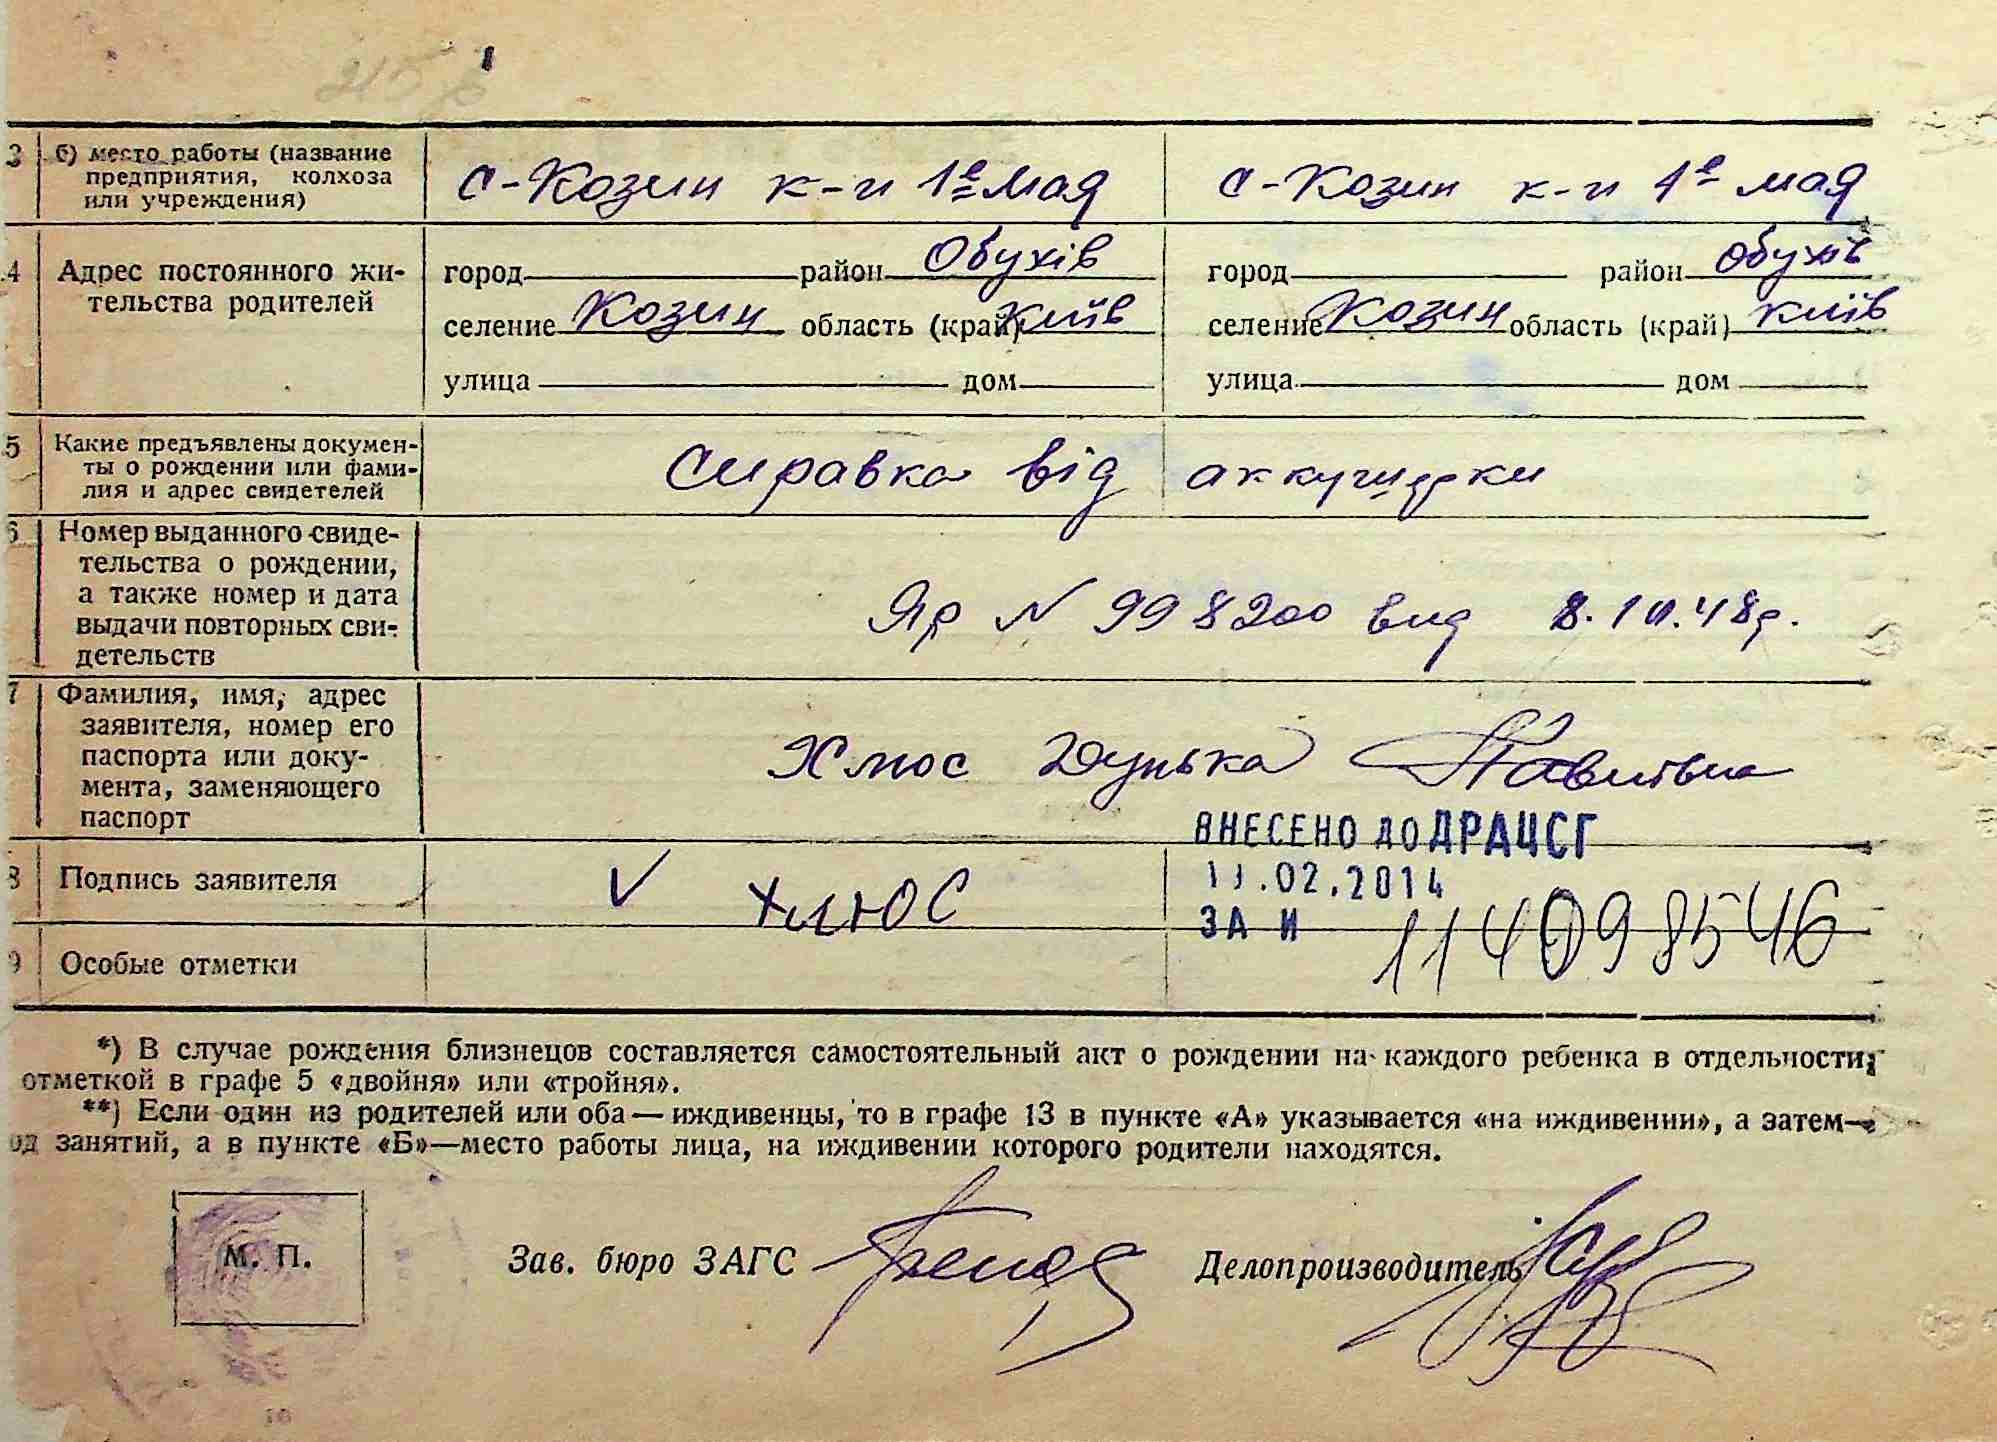 3 б) место работы (название
предприятия, колхоза
или учреждения)
с-Козин к-п 1е Мая
с-Козин к-п 1е мая
4 Адрес постоянного жи-
тельства родителей
город район Обухів
селение Козин область (край) Київ
улица дом
город район Обухів
селение Козин область (край) Київ
улица дом
5 Какие предъявлены докумен-
ты о рождении или фами-
лия и адрес свидетелей
справка від аккушерки
6 Номер выданного свиде-
тельства о рождении,
а также номер и дата
выдачи повторных сви-
детельств
Яр N 998200 вид 8.10.48р.
7 Фамилия, имя, адрес
заявителя, номер его
паспорта или доку-
мента, заменяющего
паспорт
Хлюс Дунька Павливна
ВНЕСЕНО ДО ДРАЦСГ
8 Подпись заявителя
Хлюс
11.02.2014
ЗА И 114098546
9 Особые отметки
*) В случае рождения близнецов составляется самостоятельный акт о рождении на каждого ребенка в отдельности,
отметкой в графе 5 «двойня» или «тройня».
**) Если один из родителей или оба — иждивенцы, то в графе 13 в пункте «А» указывается «на иждивении», а затем—
од занятий, а в пункте «Б»—место работы лица, на иждивении которого родители находятся.
М. П.
Зав. бюро ЗАГС
Делопроизводитель